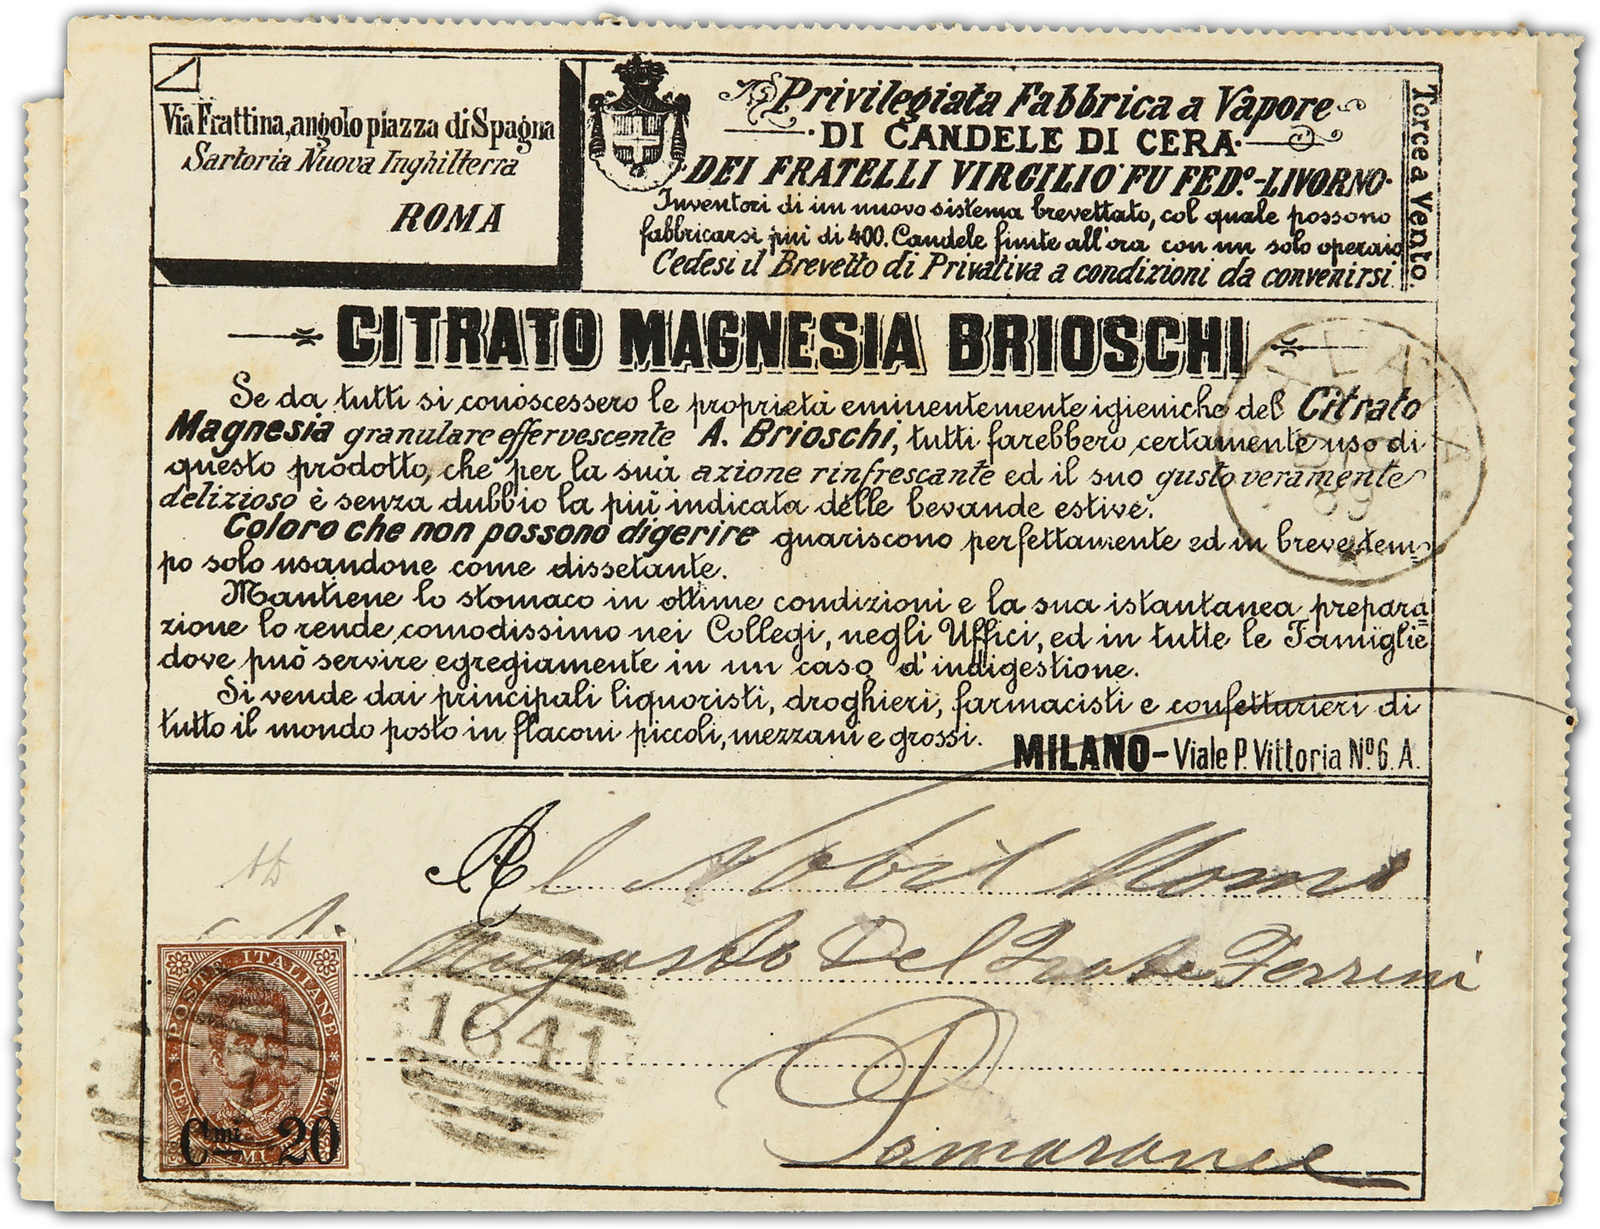 Via Frattina, angolo piazza di Spagna
Sartoria Nuova Inghilterra
ROMA
Privilegiata Fabbrica a Vapore
DI CANDELE DI CERA
DEI FRATELLI VIRGILIO FU FED.º-LIVORNO
Inventori di un nuovo sistema brevettato, col quale possono
fabbricarsi più di 400. Candele finite all'ora con un solo operaio
Cedesi il Brevetto di Privativa a condizioni da convenirsi
Torce a Vento.
CITRATO MAGNESIA BRIOSCHI
Se da tutti si conoscessero le proprietà eminentemente igieniche del Citrato
Magnesia granulare effervescente A. Brioschi, tutti farebbero certamente uso di
questo prodotto, che per la sua azione rinfrescante ed il suo gusto veramente
delizioso è senza dubbio la più indicata delle bevande estive.
Coloro che non possono digerire guariscono perfettamente ed in breve tem-
po solo usandone come dissetante.
Mantiene lo stomaco in ottime condizioni e la sua istantanea prepara=
zione lo rende comodissimo nei Collegi, negli Uffici, ed in tutte le Famiglie
dove può servire egregiamente in un caso d'indigestione.
Si vende dai principali liquoristi, droghieri, farmacisti e confetturieri di
tutto il mondo posto in flaconi piccoli, mezzani e grossi.
MILANO-Viale P. Vittoria Nº 6. A.
89
Al Nobil Uomo
Augusto Del Frate Ferrini
Pomarance
1641
POSTE ITALIANE
Cmi 20